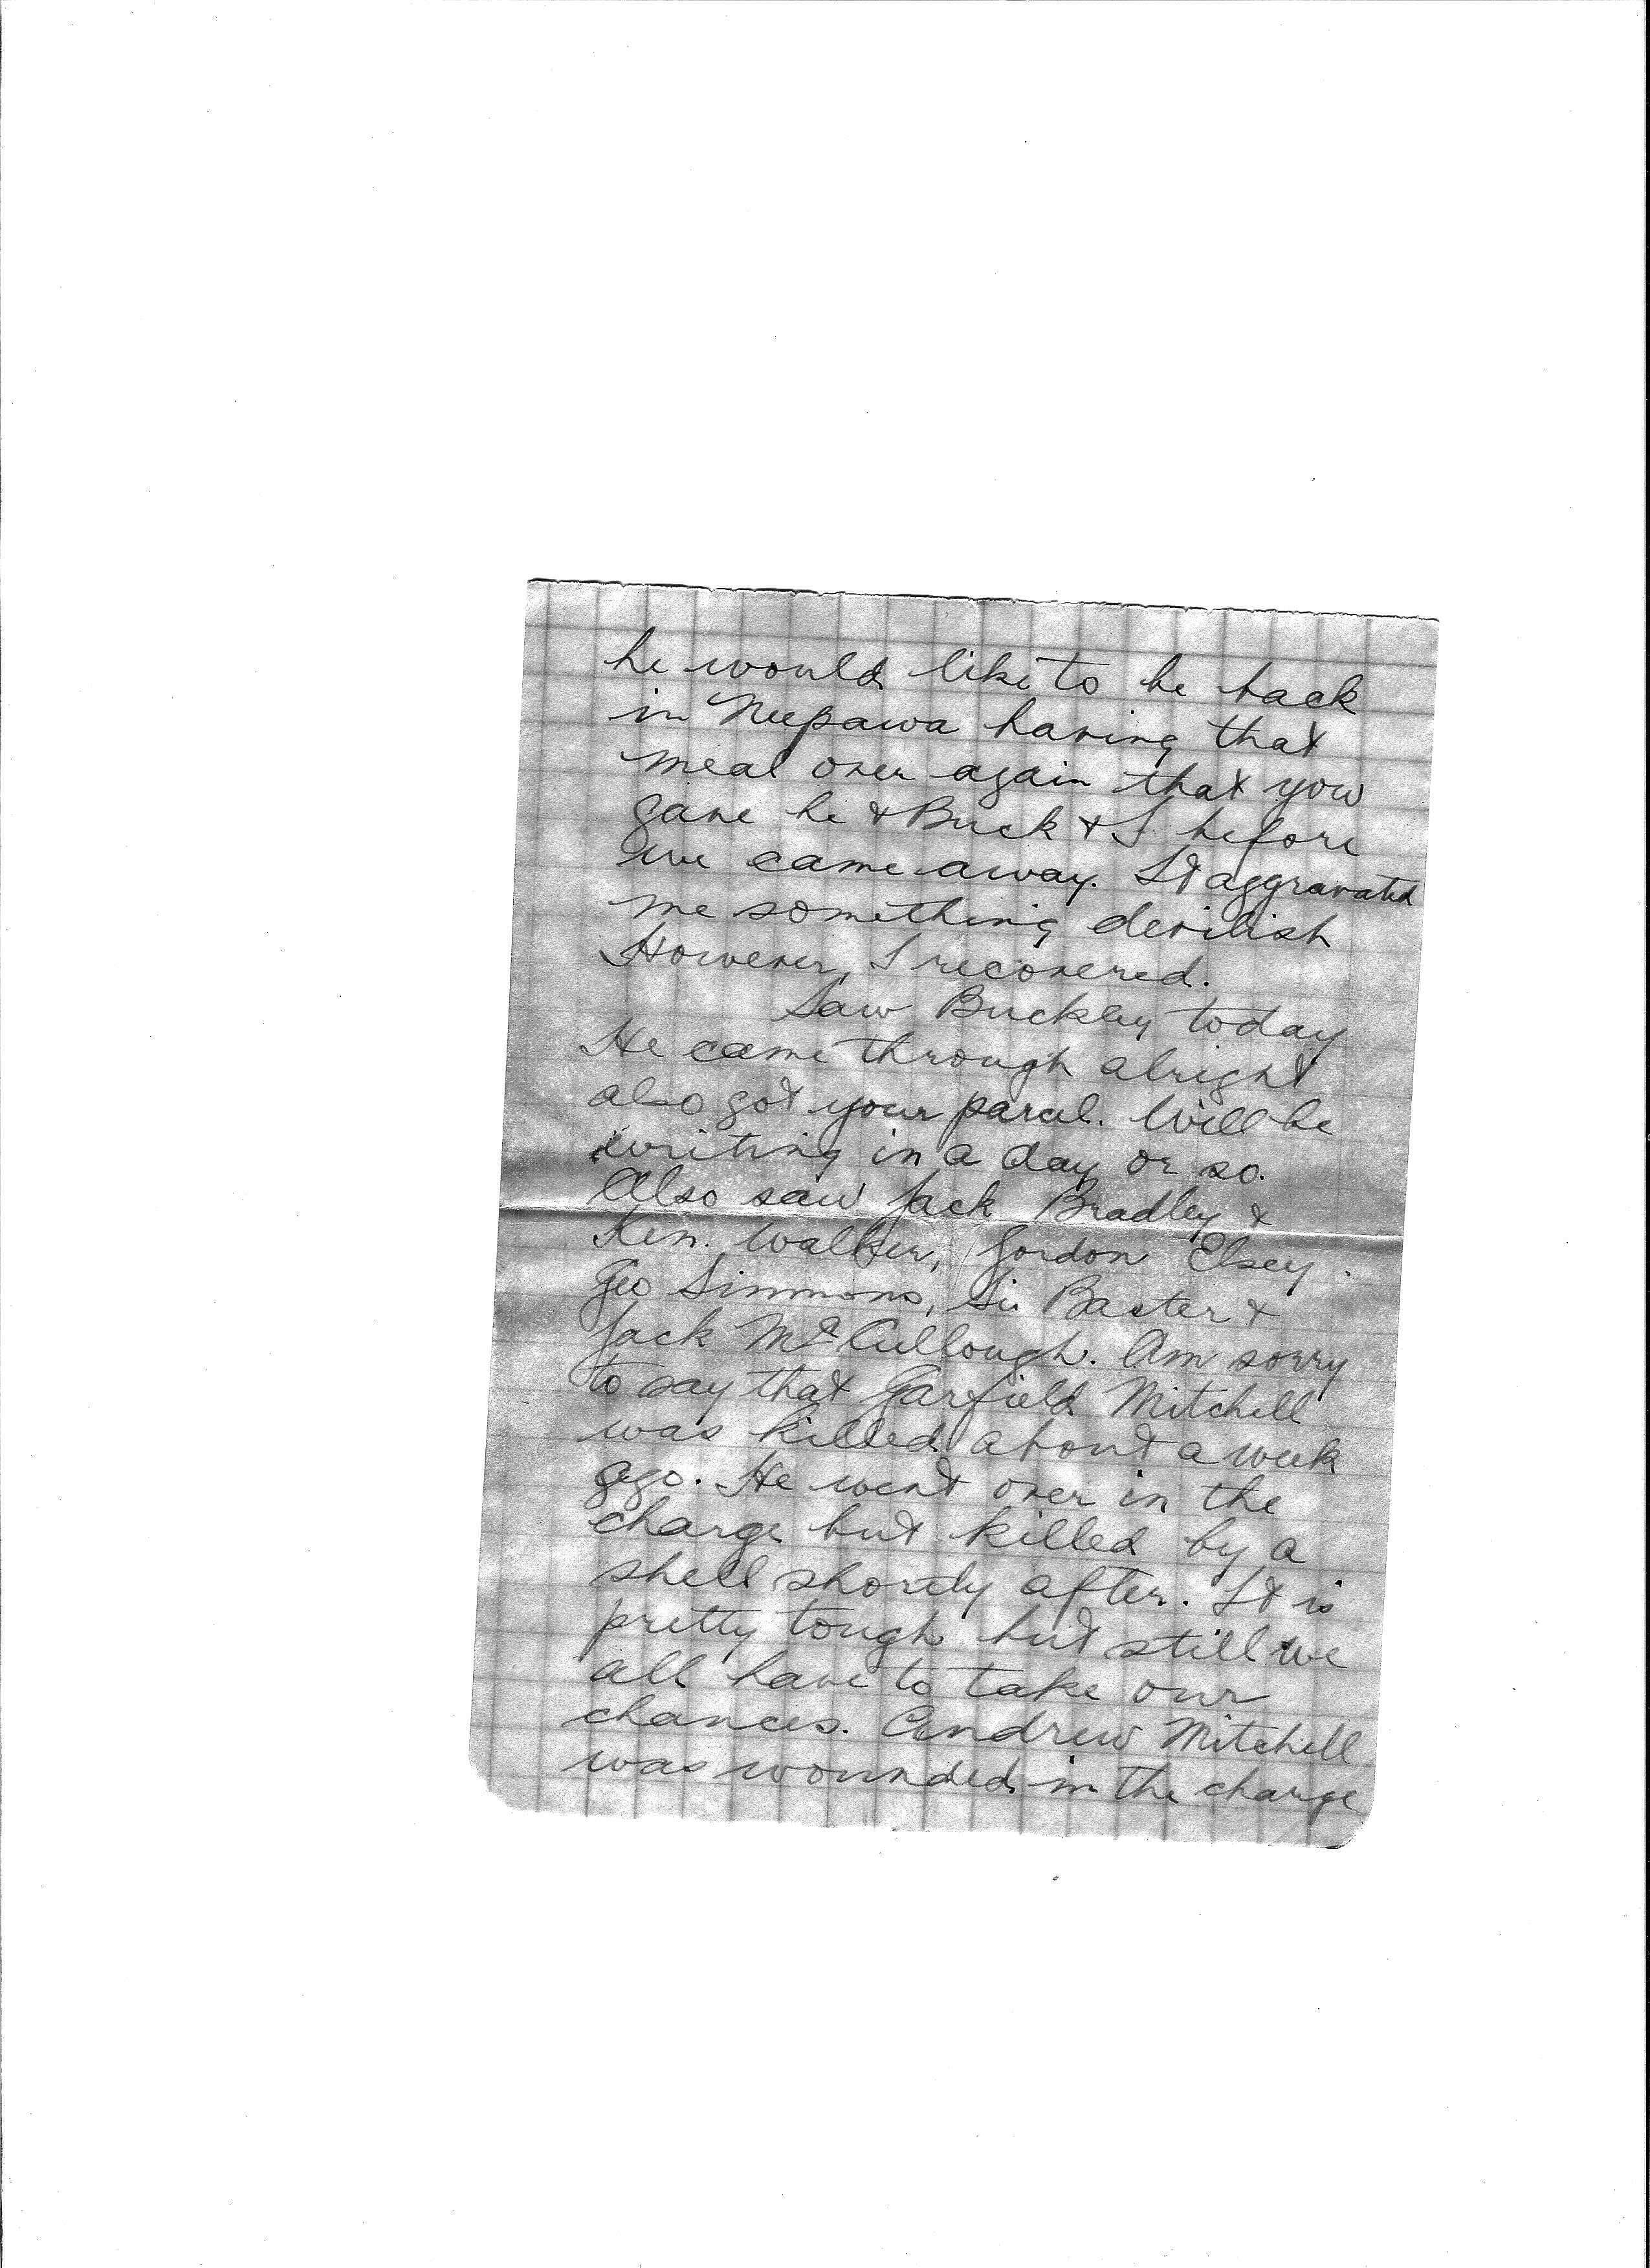 he would like to be back
in Neepawa having that
meal over again that you
gave he & Buck & I before
we came away. It aggravated
me something devilish
However, I recovered.
Saw Buckley today
He came through alright
also got your parcel. Will be
writing in a day or so.
Also saw Jack Bradley &
Ken. Walker, Gordon Elsey.
Geo Simmons, Si Baxter &
Jack McCullough. Am sorry
to say that Garfield Mitchell
was killed about a week
ago. He went over in the
charge but killed by a
shell shortly after. It is
pretty tough but still we
all have to take our
chances. Andrew Mitchell
was wounded in the charge